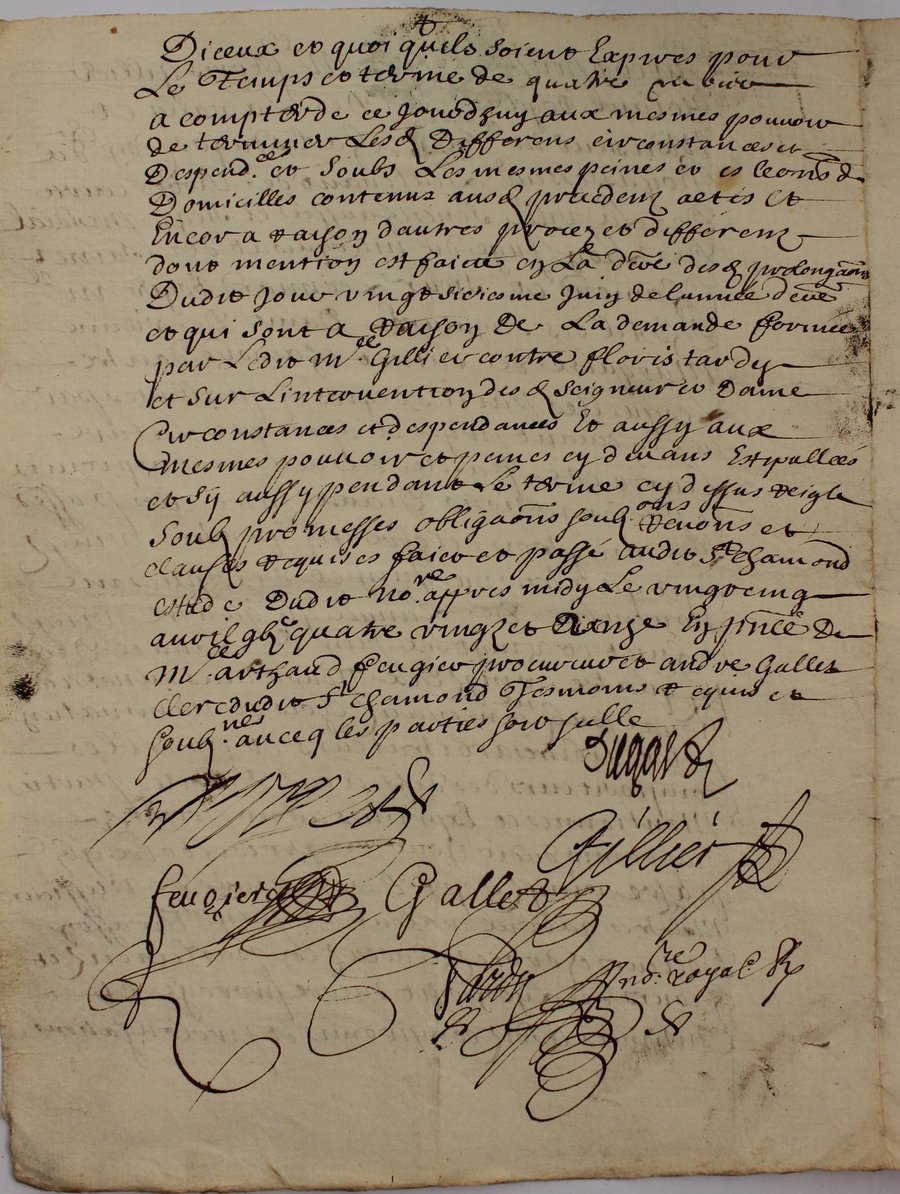 Diceux et quoi quils soient Expires pour
Le Temps et terme de quatre
a compter de ce jourdhuy aux mesmes pouvoir
de terminer Lesd Differens circonstances et
Despend.ces et Soubs Les mesmes peines et es leons de
Domicilles contenus ausd precedens actes Et
Encor a raison dautres procez et differens
dont mention est faicte en La d.re desd prolongaons
Dudit jour vingt sixiesme Juin de lannee d.re
et qui sont a raison De La demande formee
par Ledit M.e Gillier contre floris tardy
et sur Lintervention desd Seigneur et Dame
Circonstances et despendances Et aussy aux
mesmes pouvoir et peines cy devans Estipullees
et Sy aussy pendant Le terme cy dessus reigle
Soubz promesses obligaons soubz.ons renons et
clauses requises faict et passé audit S.t chamond
estude Dudit no.re appres midy Le vingt cinq
avril gbc quatre vingz et Onze En pnce De
M.e arthaud feugier procureur et andre Gallet
clerc dudit S.t chamond Tesmoins requis et
soubz.nes avecq les parties
Dugas
Gillier
feugier Gallet
Tardy no.re royal